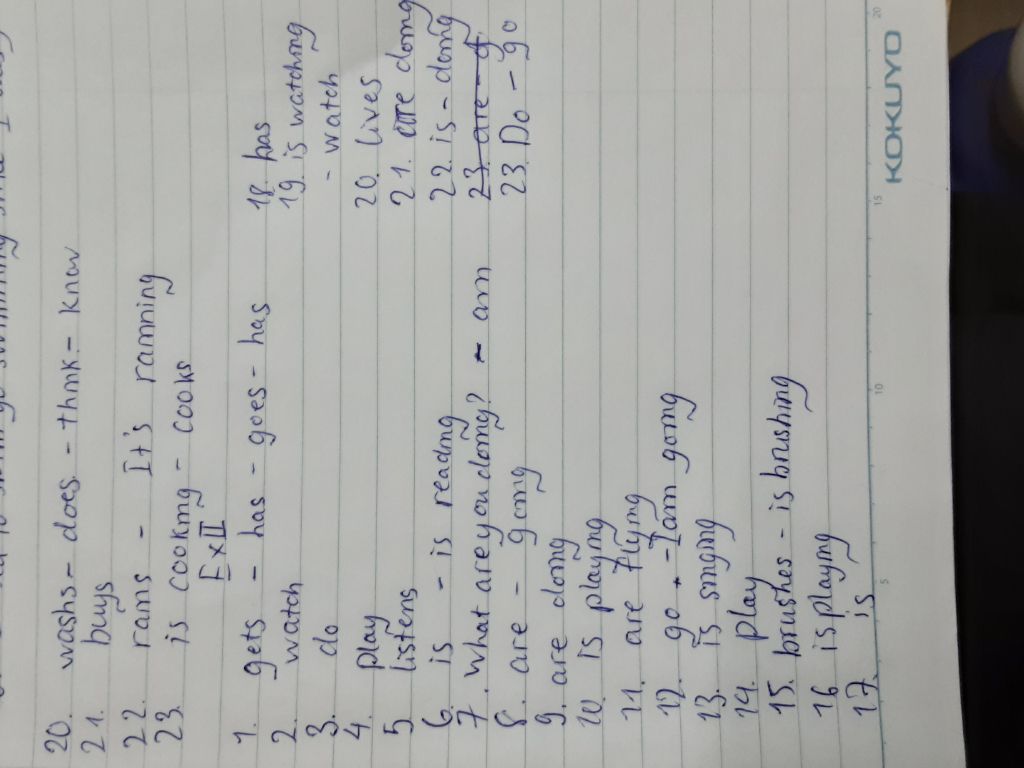 20. washs - does - think - know
21. buys
22. rains - It's raining
23. is cooking - cooks
Ex II
1. gets - has - goes - has
2. watch
3. do
4. play
5. listens
6. is - is reading
7. what are you doing? - am
8. are - going
9. are doing
10 is playing
11. are flying
12. go - I am going
13. is singing
14. play
15. brushes - is brushing
16 is playing
17. is
18. has
19. is watching
- watch
20. lives
21. are doing
22. is - doing
23. are - g
23. Do - go
5 10 15 20
KOKUYO